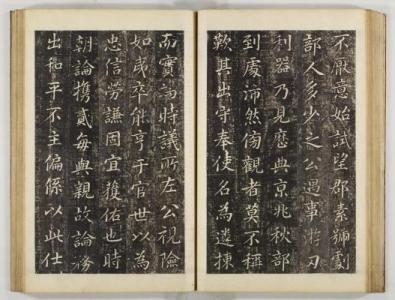 不厭意始試望郡素號劇
部人多少之公遇事游刃
利器乃見應典京兆秋部
到處沛然傍觀者莫不稱
歎其出守奉使名為遴揀
而實為時議所左公視險
如夷卒能亨于官世以為
忠信勞謙固宜獲佑也時
朝論攜貳每與親故論務
出和平不主偏係以此仕